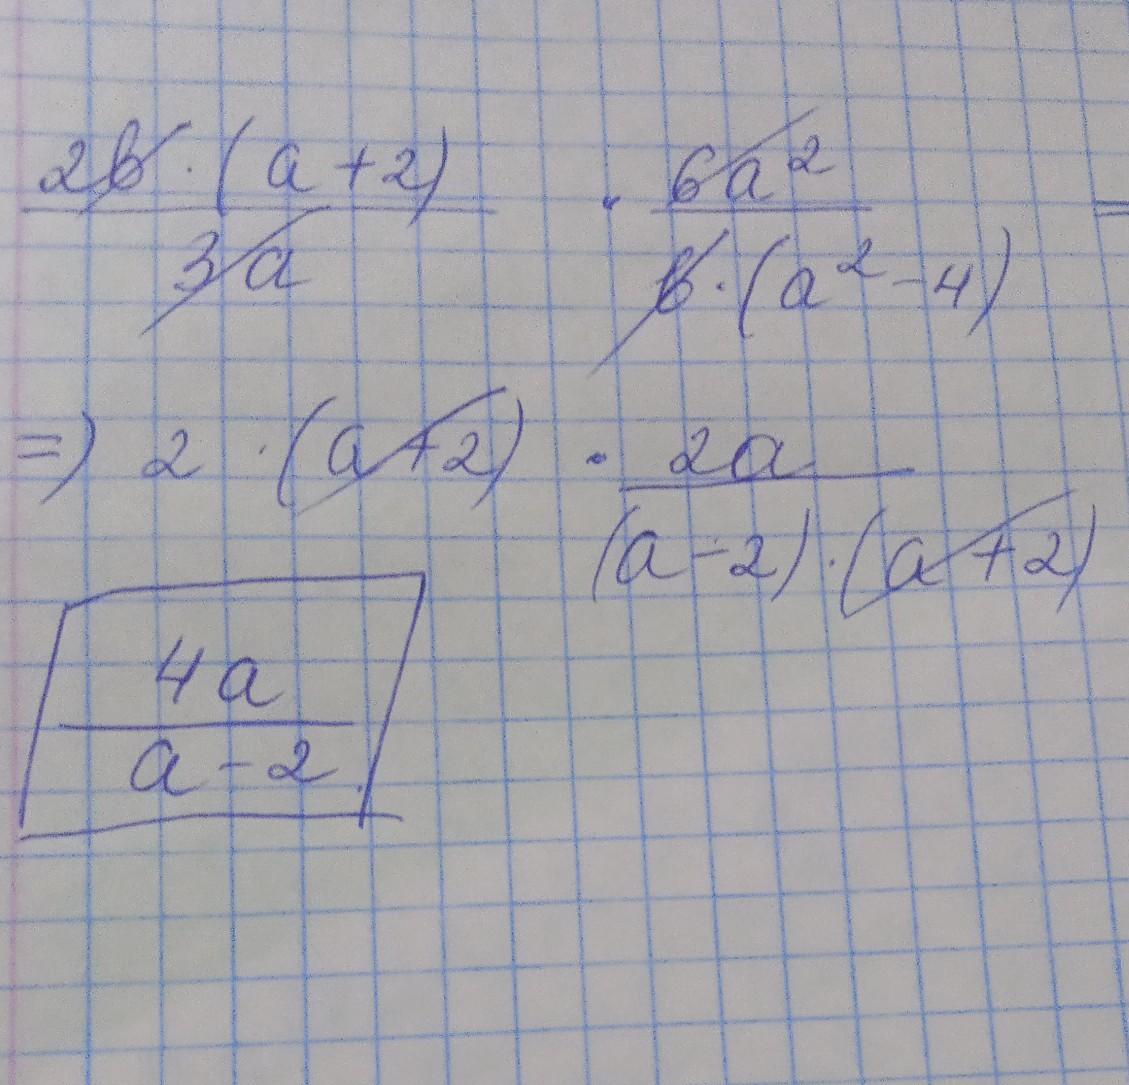 2b · (a + 2) / 3a · 6a² / b · (a² - 4) =
=) 2 · (a + 2) · 2a / (a - 2) · (a + 2)
4a / a - 2